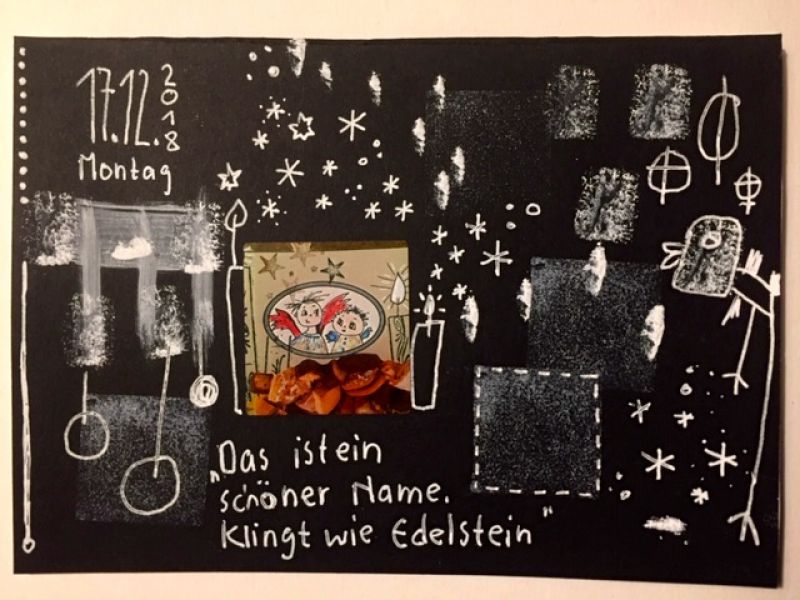 17.12.2018
Montag
„Das ist ein
schöner Name.
Klingt wie Edelstein"